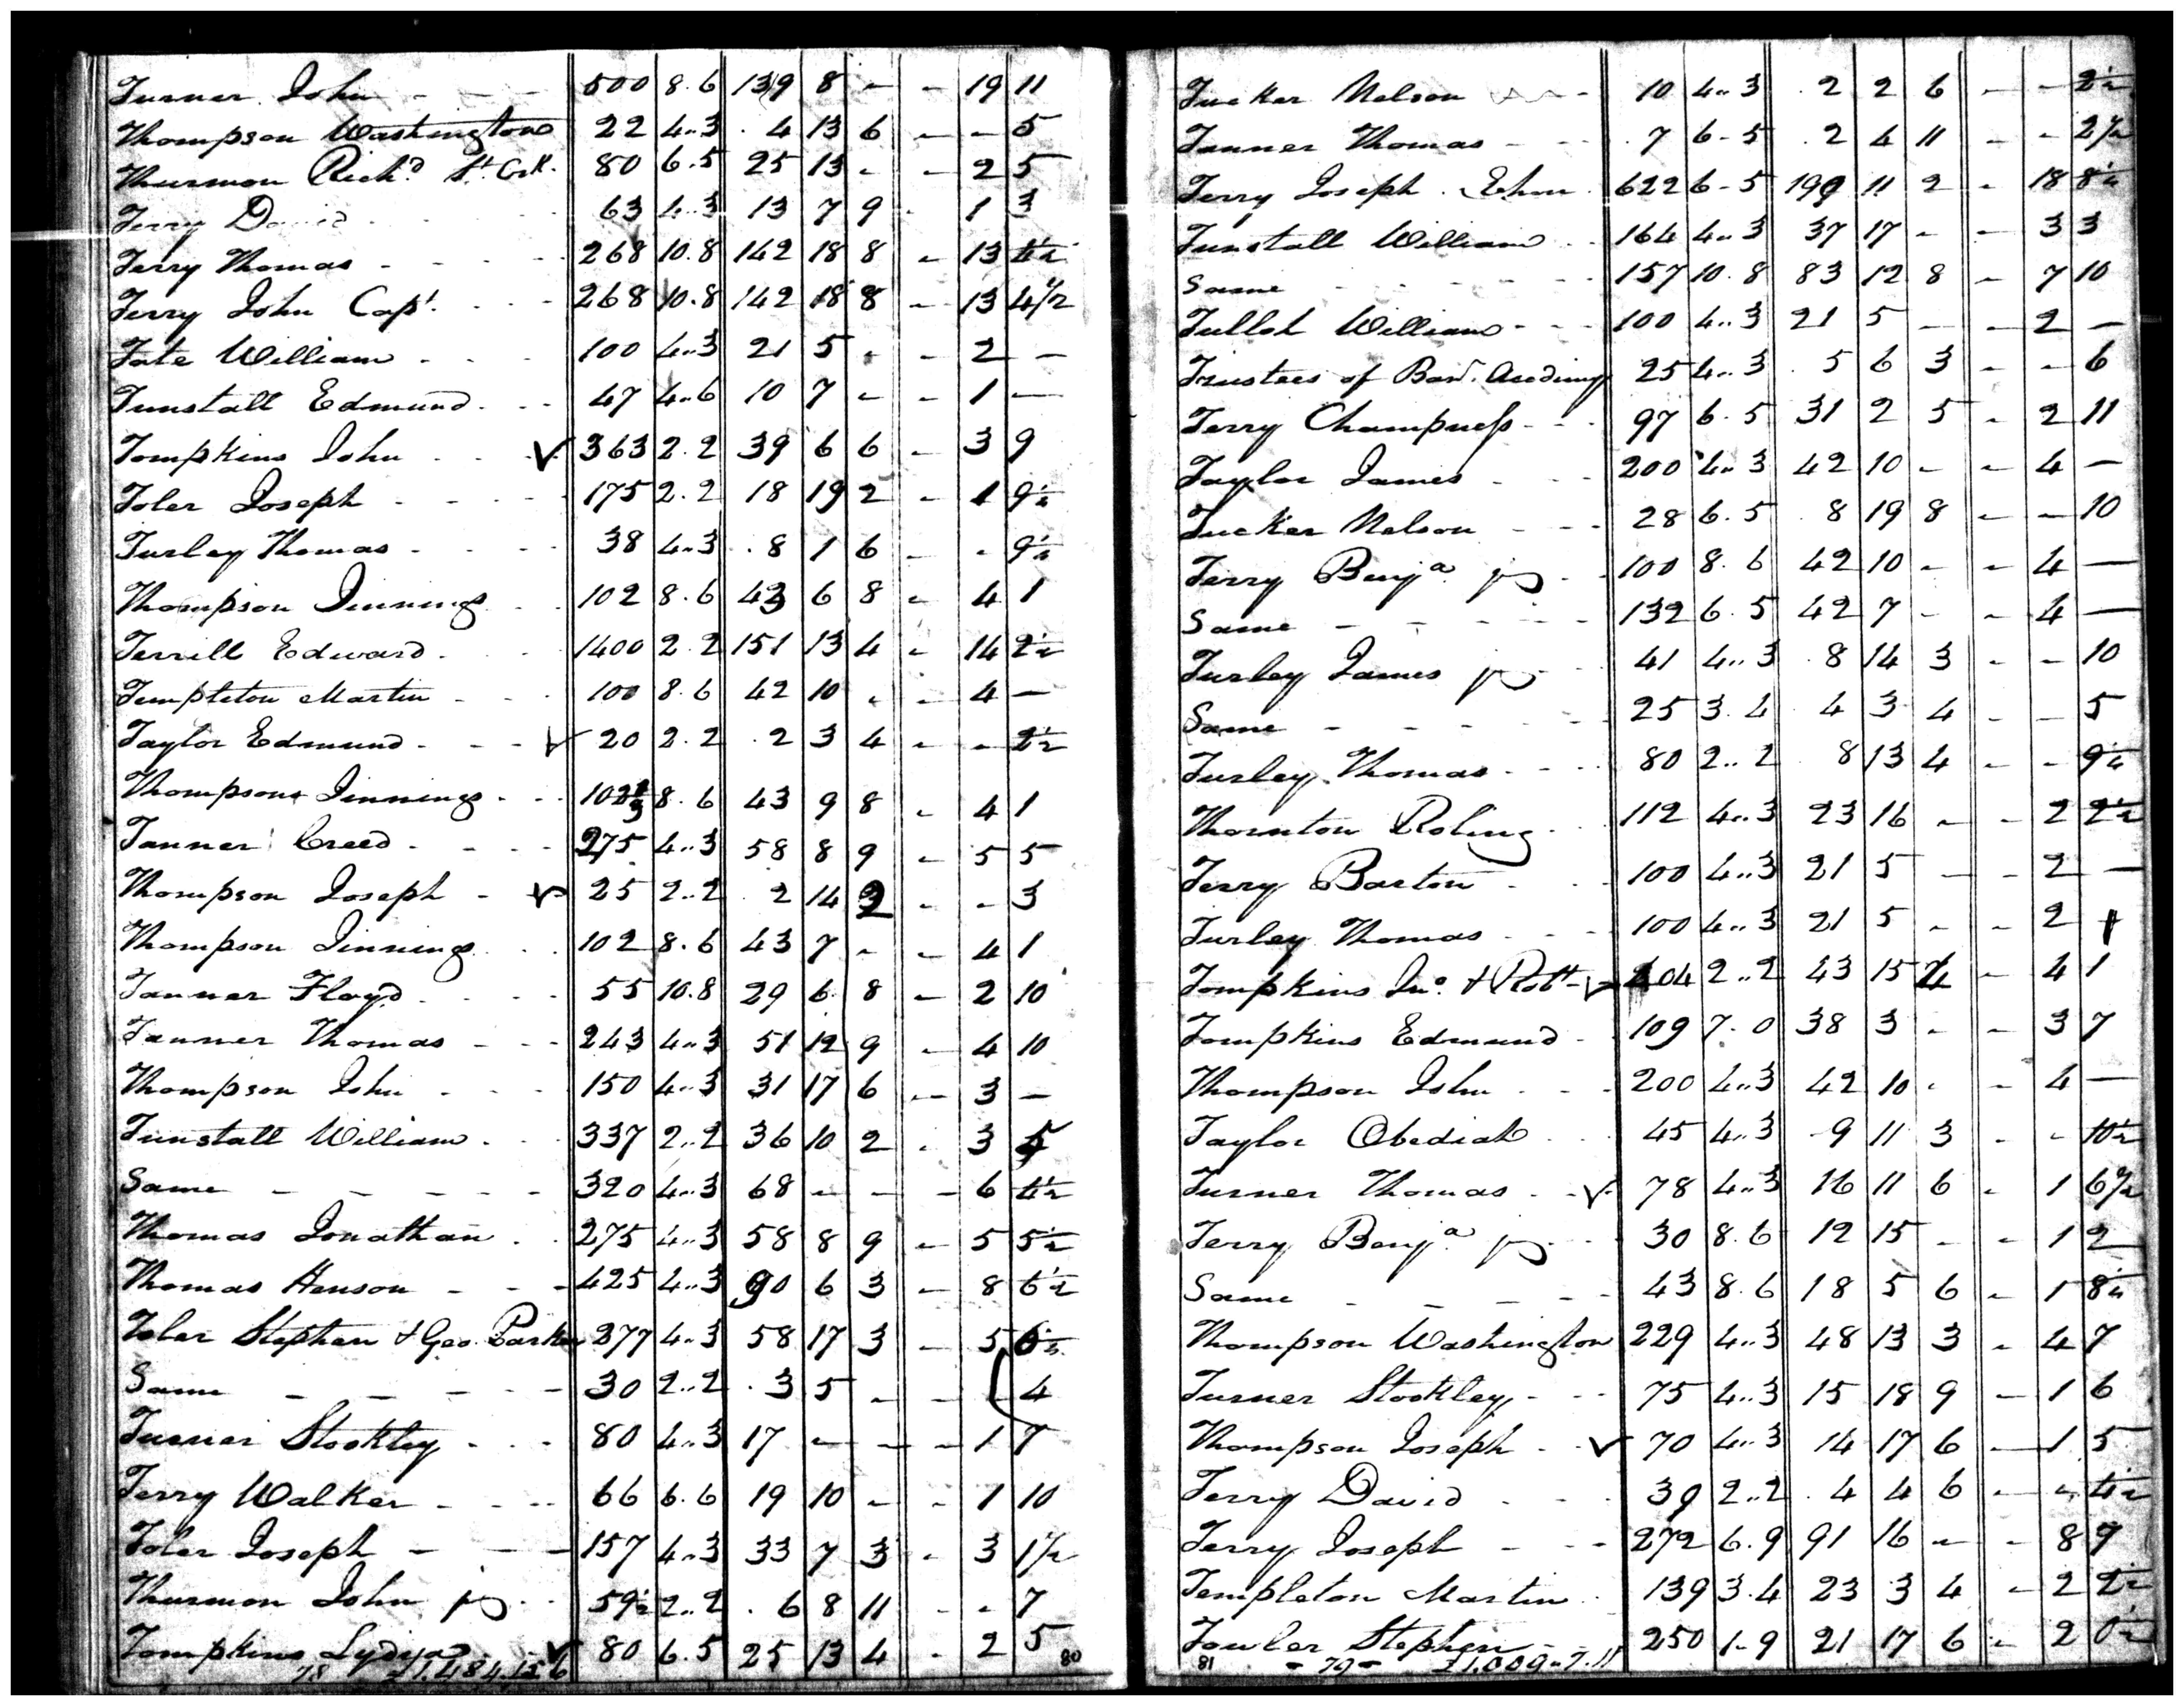 Turner John - - - 500 8.6 139 8 - - 19 11
Thompson Washington 22 4..3 4 13 6 - - 5
Thurmon Richd. St. Crk. 80 6.5 25 13 - - 2 5
Terry David 63 4..3 13 7 9 - 1 3
Terry Thomas - - - - 268 10.8 142 18 8 - 13 4½
Terry John Capt. - - - 268 10.8 142 18 8 - 13 4½
Tate William - - - 100 4..3 21 5 - - 2 -
Tunstall Edmund - - - 47 4..6 10 7 - - 1 -
Tompkins John - - ✓ 363 2.2 39 6 6 - 3 9
Toler Joseph - - - - 175 2.2 18 19 2 - 1 9½
Turley Thomas - - - - 38 4..3 8 1 6 - - 9½
Thompson Jinnings - - 102 8.6 43 6 8 - 4 1
Terrill Edward - - - 1400 2.2 151 13 4 - 14 2½
Templeton Martin - - - 100 8.6 42 10 - - 4 -
Taylor Edmund - - - ✓ 20 2.2 2 3 4 - - 2½
Thompson Jinnings - - - 102⅓ 8.6 43 9 8 - 4 1
Tanner Creed - - - - 275 4..3 58 8 9 - 5 5
Thompson Joseph - ✓ 25 2..2 2 14 2 - - 3
Thompson Jinnings - - 102 8.6 43 7 - - 4 1
Tanner Floyd - - - - 55 10.8 29 6 8 - 2 10
Tanner Thomas - - - 243 4..3 51 12 9 - 4 10
Thompson John - - - 150 4..3 31 17 6 - 3 -
Tunstall William - - 337 2..2 36 10 2 - 3 5
Same - - - - - - 320 4..3 68 - - - 6 4½
Thomas Jonathan - - 275 4..3 58 8 9 - 5 5½
Thomas Henson - - - 425 4..3 90 6 3 - 8 6½
Toler Stephen & Geo. Parker 277 4..3 58 17 3 - 5 6½
Same - - - - - 30 2..2 3 5 - - 4
Turner Stockley - - - 80 4..3 17 - - - 1 7
Terry Walker - - - 66 6.6 19 10 - - 1 10
Toler Joseph - - - 157 4..3 33 7 3 - 3 1½
Thurmon John jr - - 59½ 2..2 6 8 11 - - 7
Tompkins Lydya ✓ 80 6.5 25 13 4 - 2 5
80
Tucker Nelson - 10 4..3 2 2 6 - - 2½
Tanner Thomas - - - 7 6-5 2 4 11 - - 2½
Terry Joseph 622 6-5 199 11 2 - 18 8½
Tunstall William - - 164 4..3 37 17 - - 3 3
Same - - - - - 157 10.8 83 12 8 - 7 10
William - - - 100 4..3 21 5 - - 2 -
Trustees of Ban. 25 4..3 5 6 3 - - 6
Terry Champness - - - 97 6.5 31 2 5 - 2 11
Taylor James - - 200 4..3 42 10 - - 4 -
Tucker Nelson - - - 28 6.5 8 19 8 - - 10
Terry Benja. jr - - 100 8.6 42 10 - - 4 -
Same - - - - - 132 6.5 42 7 - - 4 -
Turley James jr - - 41 4..3 8 14 3 - - 10
Same - - - - - 25 3.4 4 3 4 - - 5
Turley Thomas - - - 80 2..2 8 13 4 - - 9½
Thornton Roling - - 112 4..3 23 16 - - 2 2½
Terry Barton - - 100 4..3 21 5 - - 2 -
Turley Thomas - - - 100 4..3 21 5 - - 2 1
Tompkins Jno. & Robt - ✓ 404 2..2 43 15 4 - 4 1
Tompkins Edmund - 109 7.0 38 3 - - 3 7
Thompson John - - - 200 4..3 42 10 - - 4 -
Taylor Obediah - - 45 4..3 9 11 3 - - 10½
Turner Thomas - ✓ 78 4..3 16 11 6 - 1 6½
Terry Benja. jr - - 30 8.6 12 15 - - 1 2
Same - - - - - 43 8.6 18 5 6 - 1 8½
Thompson Washington 229 4..3 48 13 3 - 4 7
Turner Stockley - - - 75 4..3 15 18 9 - 1 6
Thompson Joseph - ✓ 70 4..3 14 17 6 - 1 5
Terry David - - - 39 2..2 4 4 6 - - 4½
Terry Joseph - - - 272 6.9 91 16 - - 8 9
Templeton Martin - 139 3.4 23 3 4 - 2 2½
Fowler Stephen - - 250 1-9 21 17 6 - 2 0½
81 - 79 - £1,009-7.11